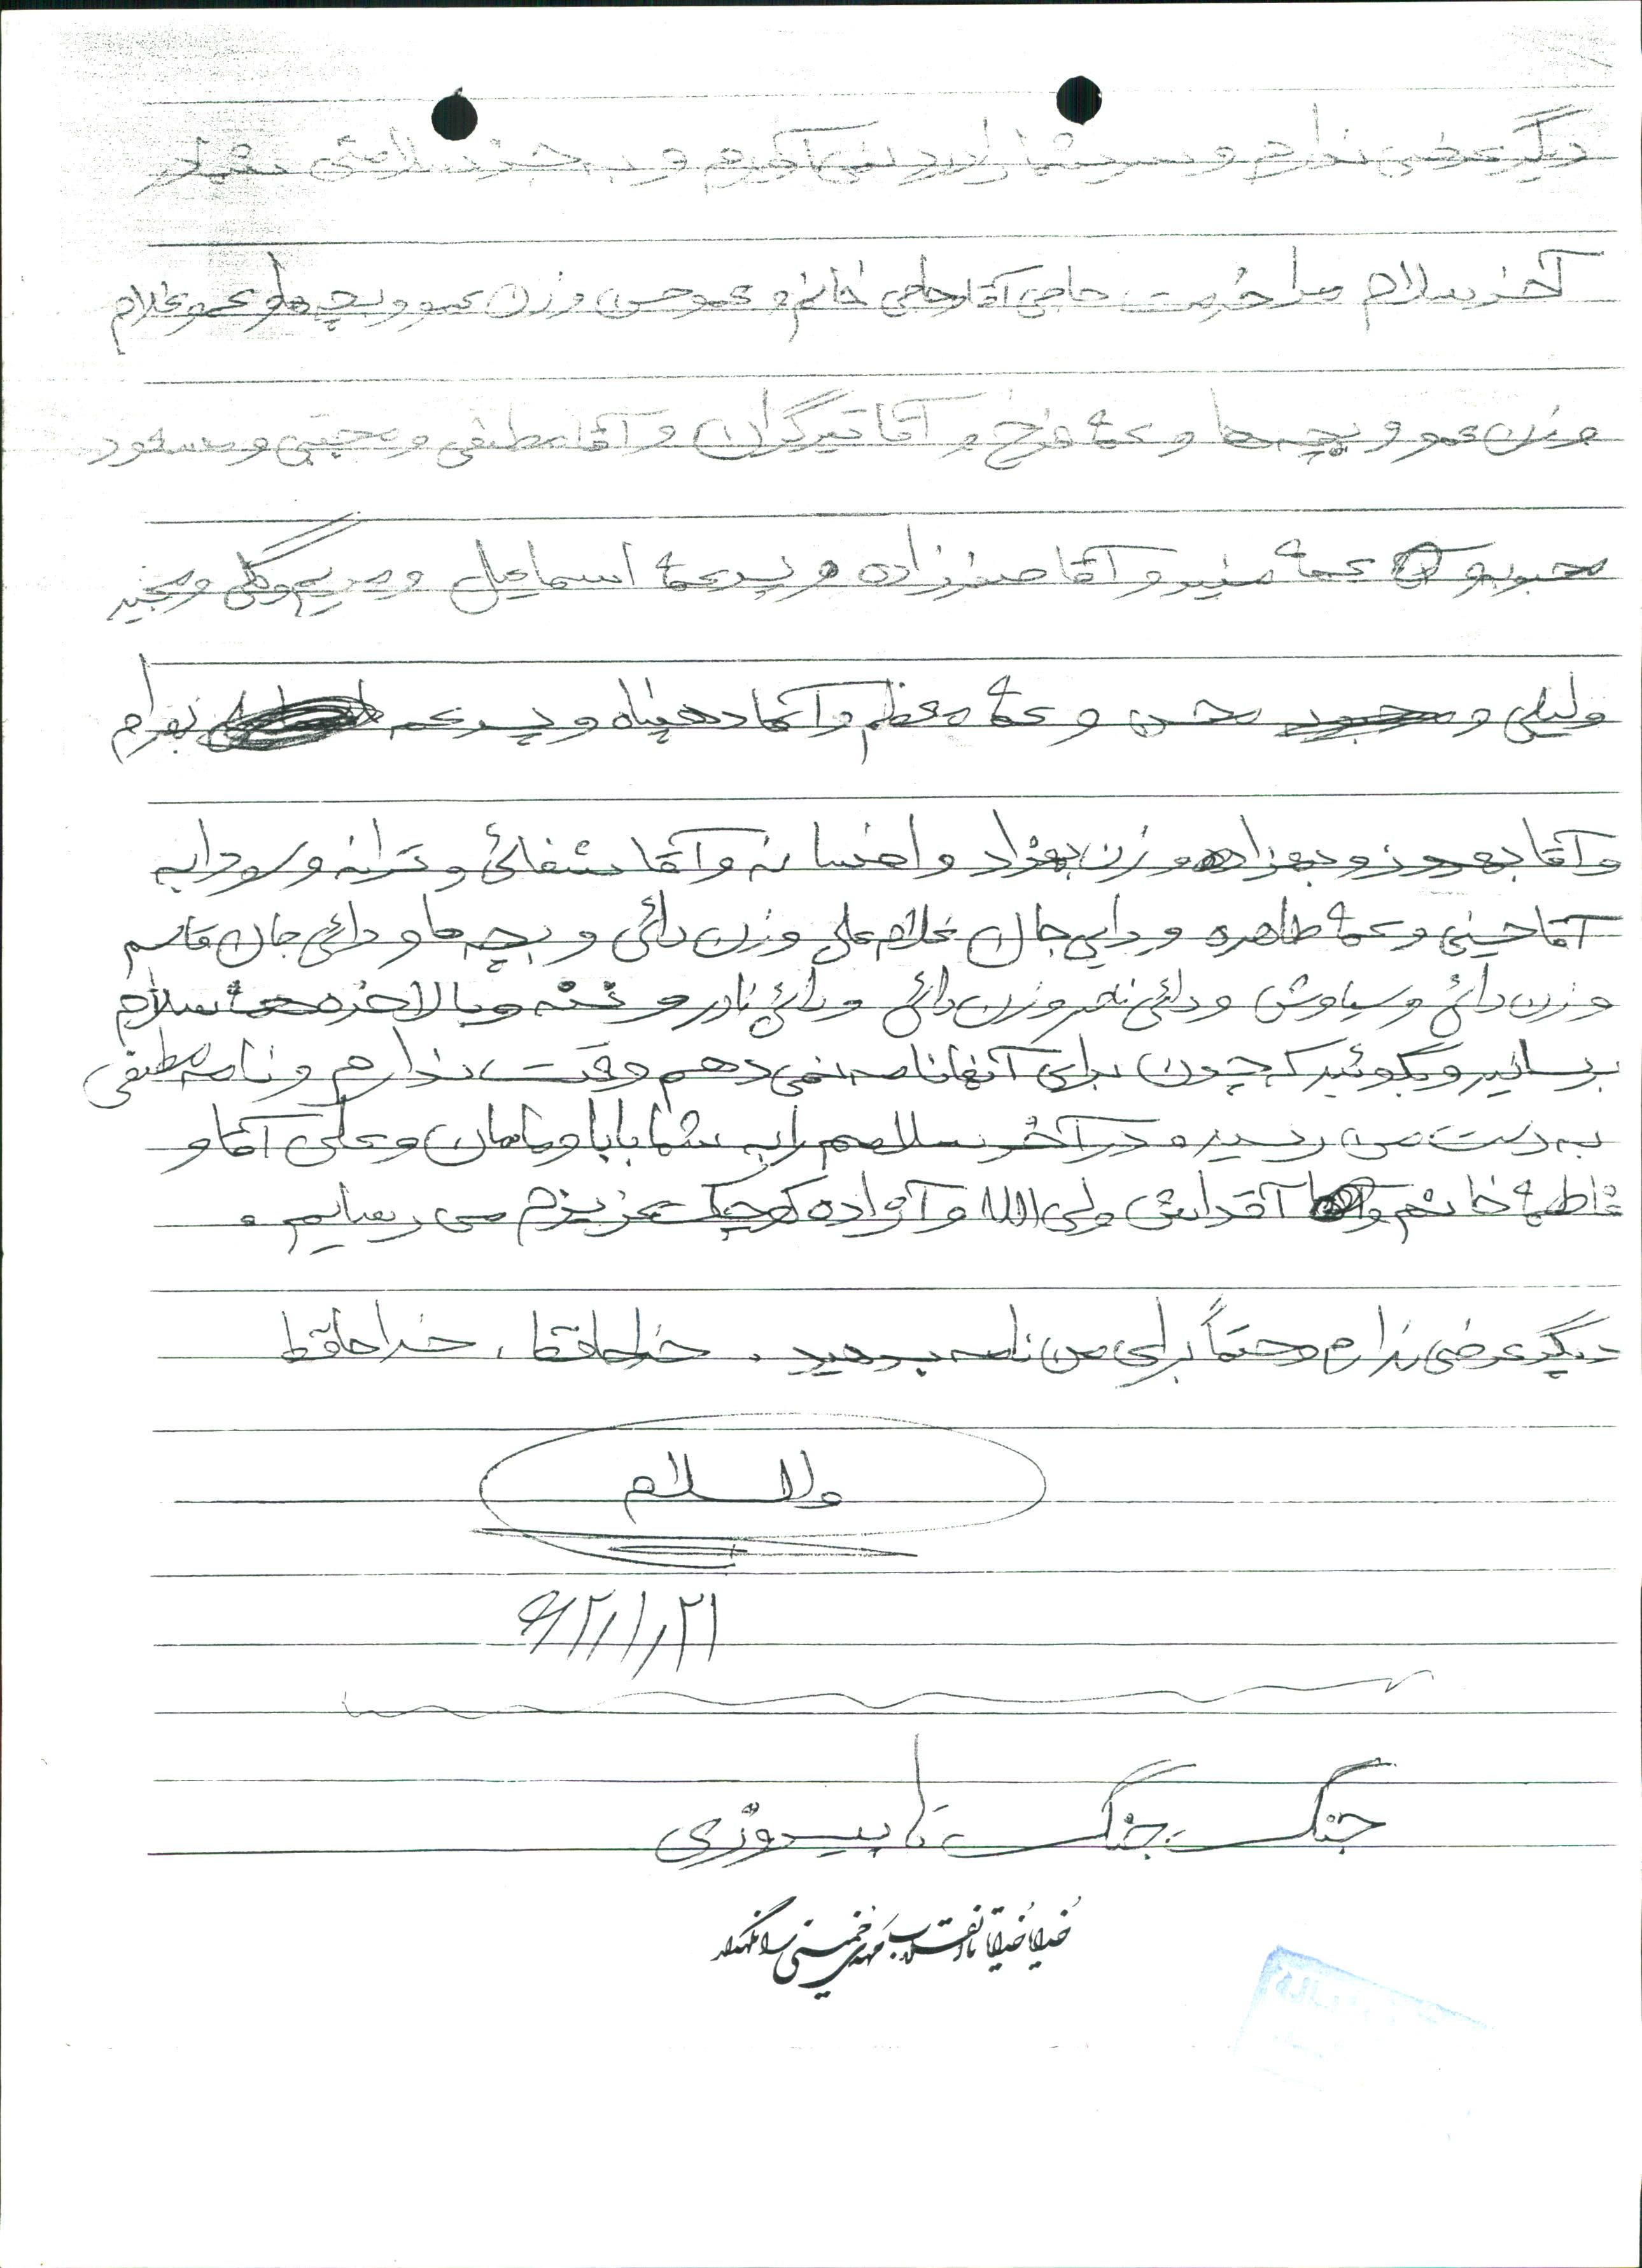 دیگر عرضی ندارم و سر شما را درد نمی آورم و به جز سلامتی شما در
آخر سلام مرا خدمت حاجی آقا و حاجی خانم و عمو حسن و زن عمو و بچه ها و عمو غلام
و زن عمو و بچه ها و عمه فرخ و آقا تیرگران و آقا مصطفی و مجتبی و مسعود
محبوبه و عمه منیر و آقا صفرزاده و پسر عمه اسماعیل و مریم و گلی و مجید
و لیلی و محسن و عمه معظم و آقا دهپناه و پسر عمه بهرام
و آقا بهروز و بهزاد و زن بهزاد و افسانه و آقا شفائی و ترانه و سودابه
آقا حسینی و عمه طاهره و دایی جان غلامعلی و زن دائی و بچه ها و دائی جان قاسم
و زن دائی و سیاوش و دائی ناصر و زن دائی و دائی نادر و ننه و بالاخره همه سلام
برسانید و بگوئید که چون برای آنها نامه نمی دهم وقت ندارم و نامه مصطفی
به دست من رسید و در آخر سلامم را به شما بابا و مامان و علی آقا و
فاطمه خانم و آقداش ولی الله و آزاده کوچک عزیزم می رسانم.
دیگر عرضی ندارم حتماً برای من نامه بدهید. خداحافظ، خداحافظ
والسلام
۶۲/۱/۲۱
جنگ جنگ تا پیروزی
خدایا خدایا تا انقلاب مهدی خمینی را نگهدار